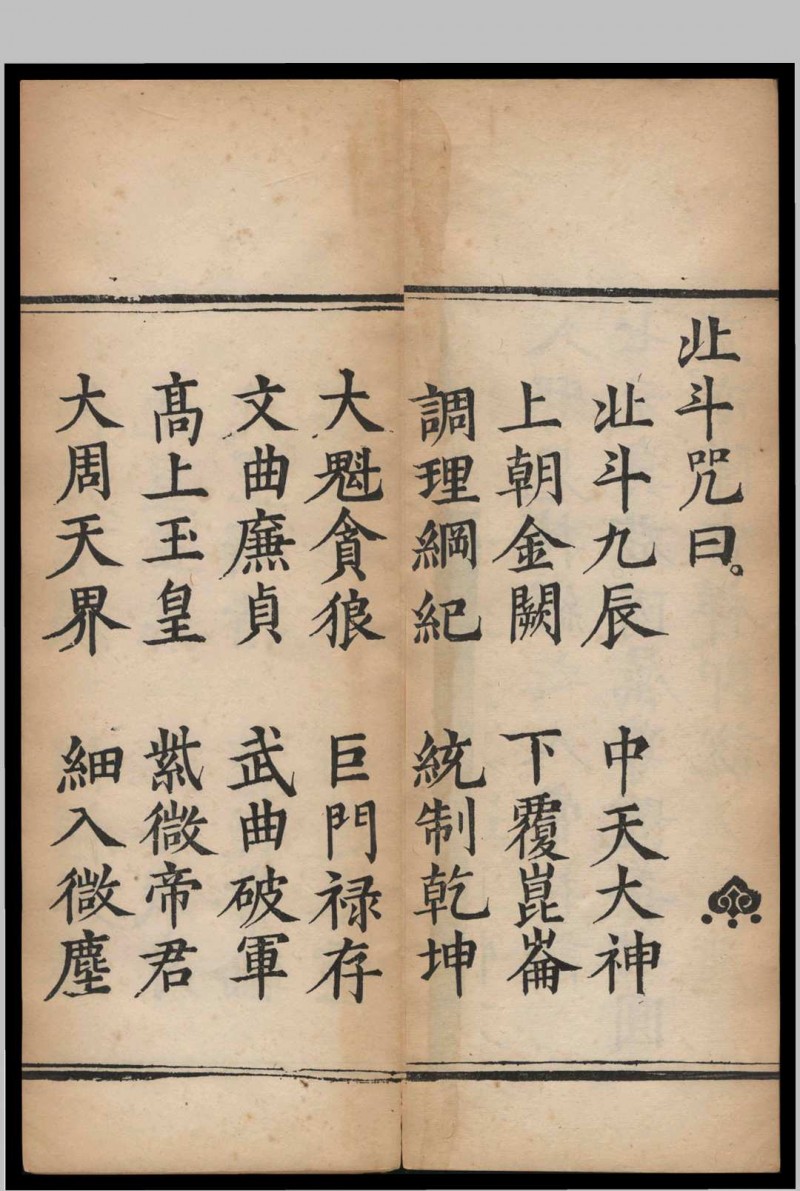 北斗咒曰。
北斗九辰　中天大神
上朝金闕　下覆崑崙
調理綱紀　統制乾坤
大魁貪狼　巨門禄存
文曲廉貞　武曲破軍
髙上玉皇　紫微帝君
大周天界　細入微塵